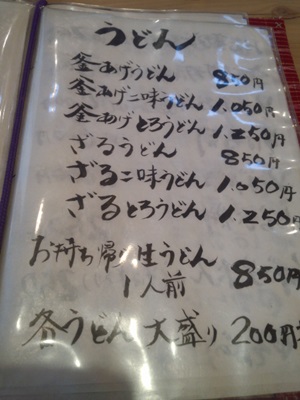 うどん
釜あげうどん 850円
釜あげ二味うどん 1,050円
釜あげとろうどん 1,250円
ざるうどん 850円
ざる二味うどん 1,050円
ざるとろうどん 1,250円
お持ち帰り生うどん
1人前 850円
各うどん 大盛り 200円